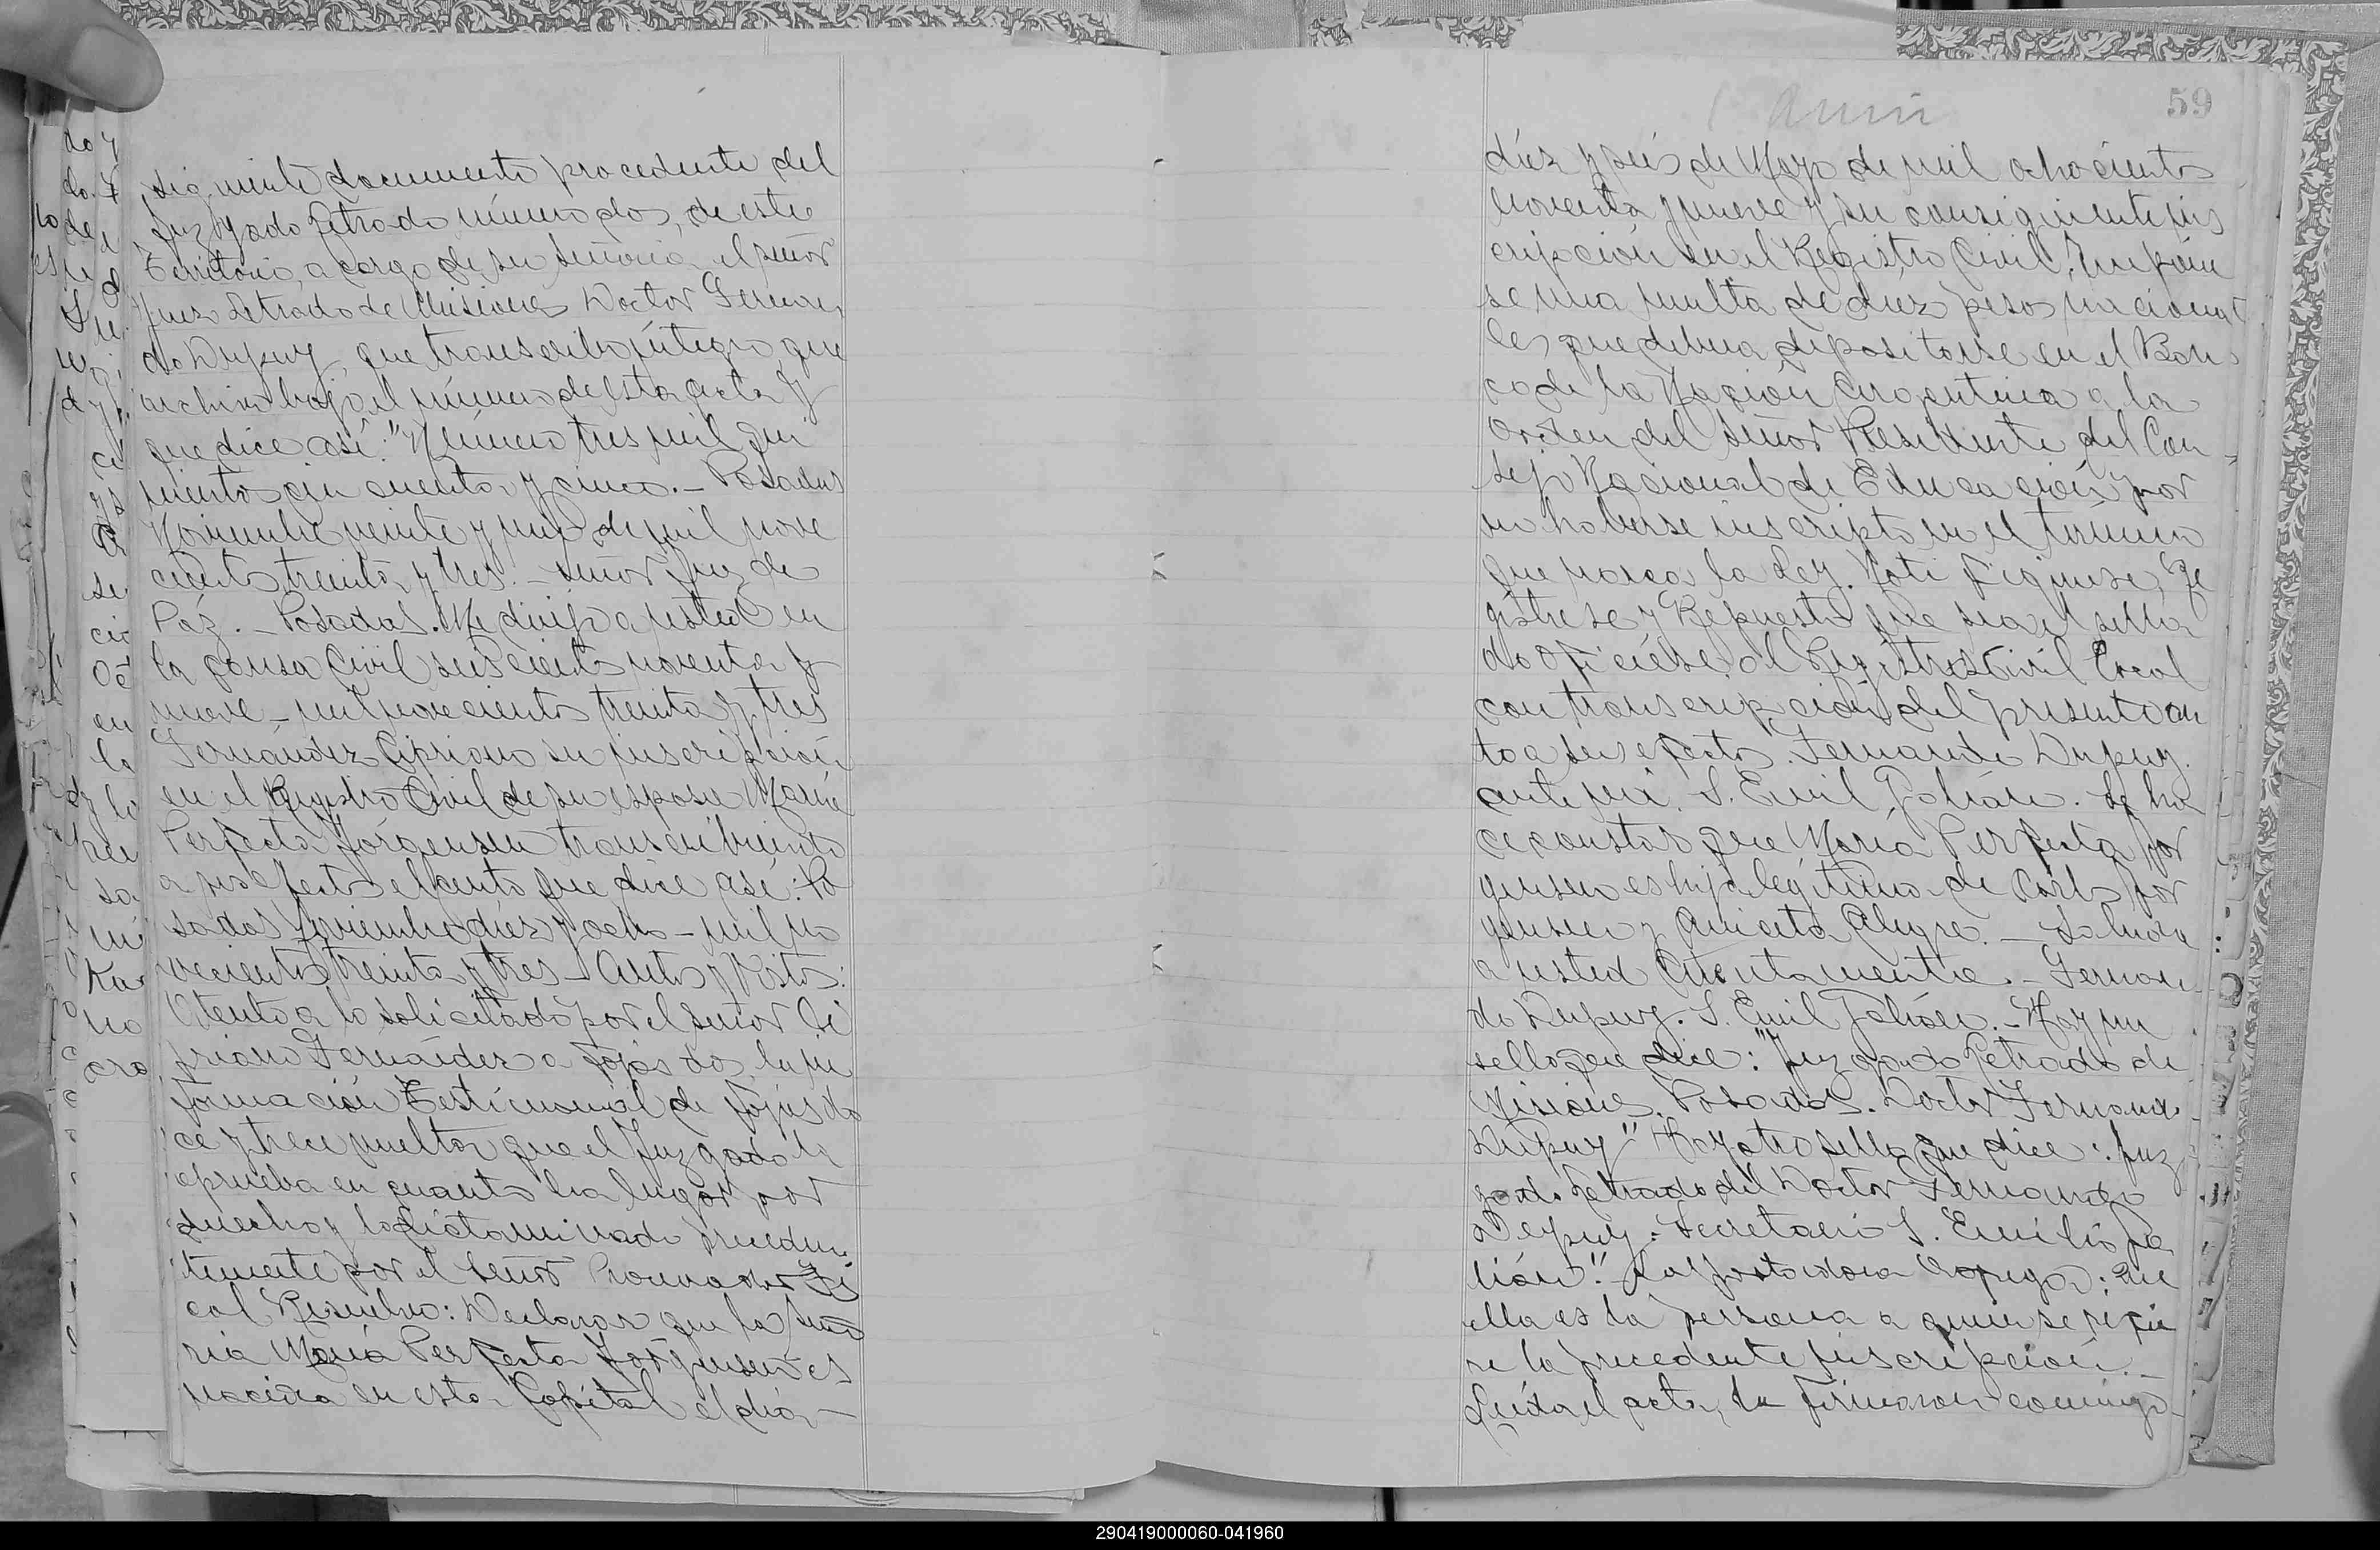 siguiente documento procedente del
Juzgado Letrado número dos, de este
Territorio, a cargo de su señoria el señor
Juez Letrado de Misiones Doctor Fernan
do Dupuy, que transcribo íntegro que
archivo bajo el número de esta acta y
que dice asi: "Número tres mil qui
nientos cincuenta y cinco.- Posadas
Noviembre veinte y uno de mil nove
cientos treinta y tres.- Señor Juez de
Paz.- Posadas. Me dirijo a usted en
la causa Civil seiscientos noventa y
nueve - mil novecientos treinta y tres
Fernández Cipriano su inscripción
en el Registro Civil de su esposa María
Perfecta Jórgensen transcribiendo
a sus efectos el auto que dice asi: Po
sadas Noviembre diez y ocho - mil no
vecientos treinta y tres - Autos y Vistos:
Atento a lo solicitado por el señor Ci
priano Fernández a fojas dos, la in
formación Testimonial de fojas do
ce y trece vuelta que el Juzgado la
aprueba en cuanto ha lugar por
derecho y lo dictaminado
por el señor Procurador Fis
cal Resuelvo: Declarar que la
María Perfecta Jórgensen es
nacida en esta Capital el día -
59
diez y seis de Mayo de mil ochocientos
noventa y nueve y su consiguiente ins
cripción en el Registro Civil. Impone
se una multa de diez pesos naciona
les que deberá depositarse en el Ban
co de la Nación Argentina a la
orden del señor Presidente del Con
sejo Nacional de Educación por
no haberse inscripto en el término
que marca la Ley. Notifiquese, Re
gistrese y Repuesto que sea el sella
do oficiese al Registro Civil local
con transcripción del presente au
to a sus efectos. Fernando Dupuy.
ante mi. S. Emil Galián. Se ha
ce constar que María Perfecta Jor
gensen es hija legitima de Carlos Jor
gensen y Aniceta Alegre.- Saluda
a usted Atentamente.- Fernan
do Dupuy. S. Emil Galián.- Hay un
sello que dice: "Juzgado Letrado de
Misiones. Posadas. Doctor Fernando
Dupuy" Hay otro sello que dice: Juz
gado Letrado del Doctor Fernando
Dupuy. Secretario S. Emilio Ga
lián". La agrega: que
ella es la persona a quien se refie
re la precedente inscripción.-
Leída el acta, la firmaron conmigo
290419000060-041960